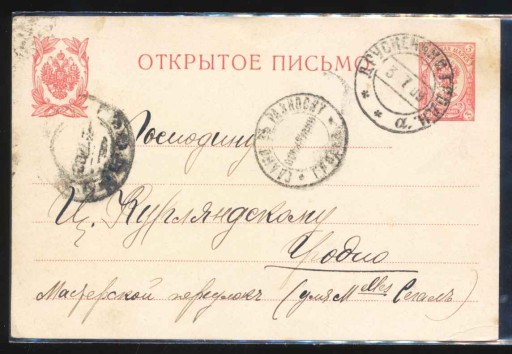 ОТКРЫТОЕ ПИСЬМО
3 7 09
Господину
Курляндскому
Гродно
Мастерской переулокъ (для M elles Сегалъ)